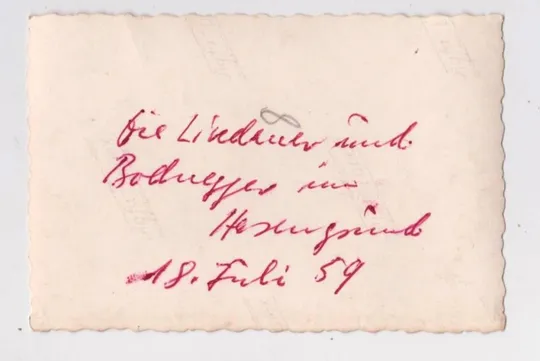 8
Die Lindauer und
Bodnegger im
Hasengrund
18. Juli 59